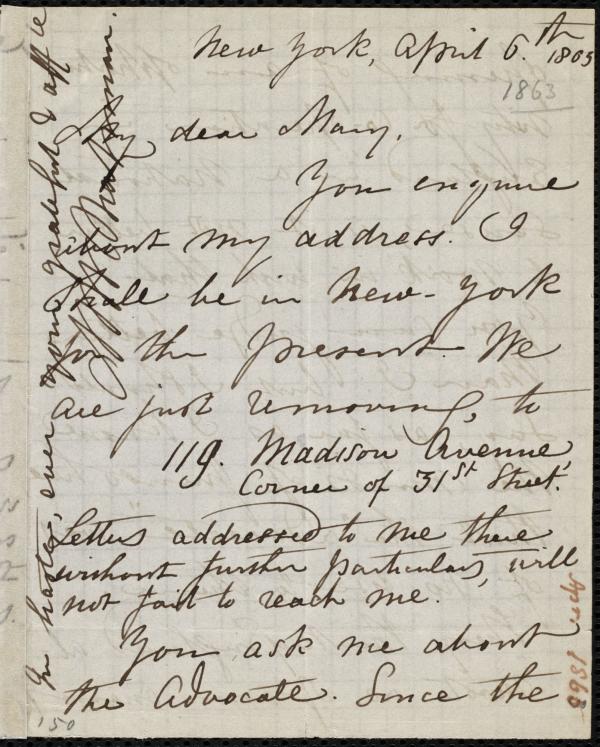 New York, April 6.th 1863
1863
My dear Mary,
You enquire
about my address. I
shall be in New-York
for the present. We
are just removing, to
119. Madison Avenue,
Corner of 31st Street.
Letters addressed to me there
without further particulars, will
not fail to reach me.
You ask me about
the Advocate. Since the
In haste, ever your grateful & aff
Apr 1863
150